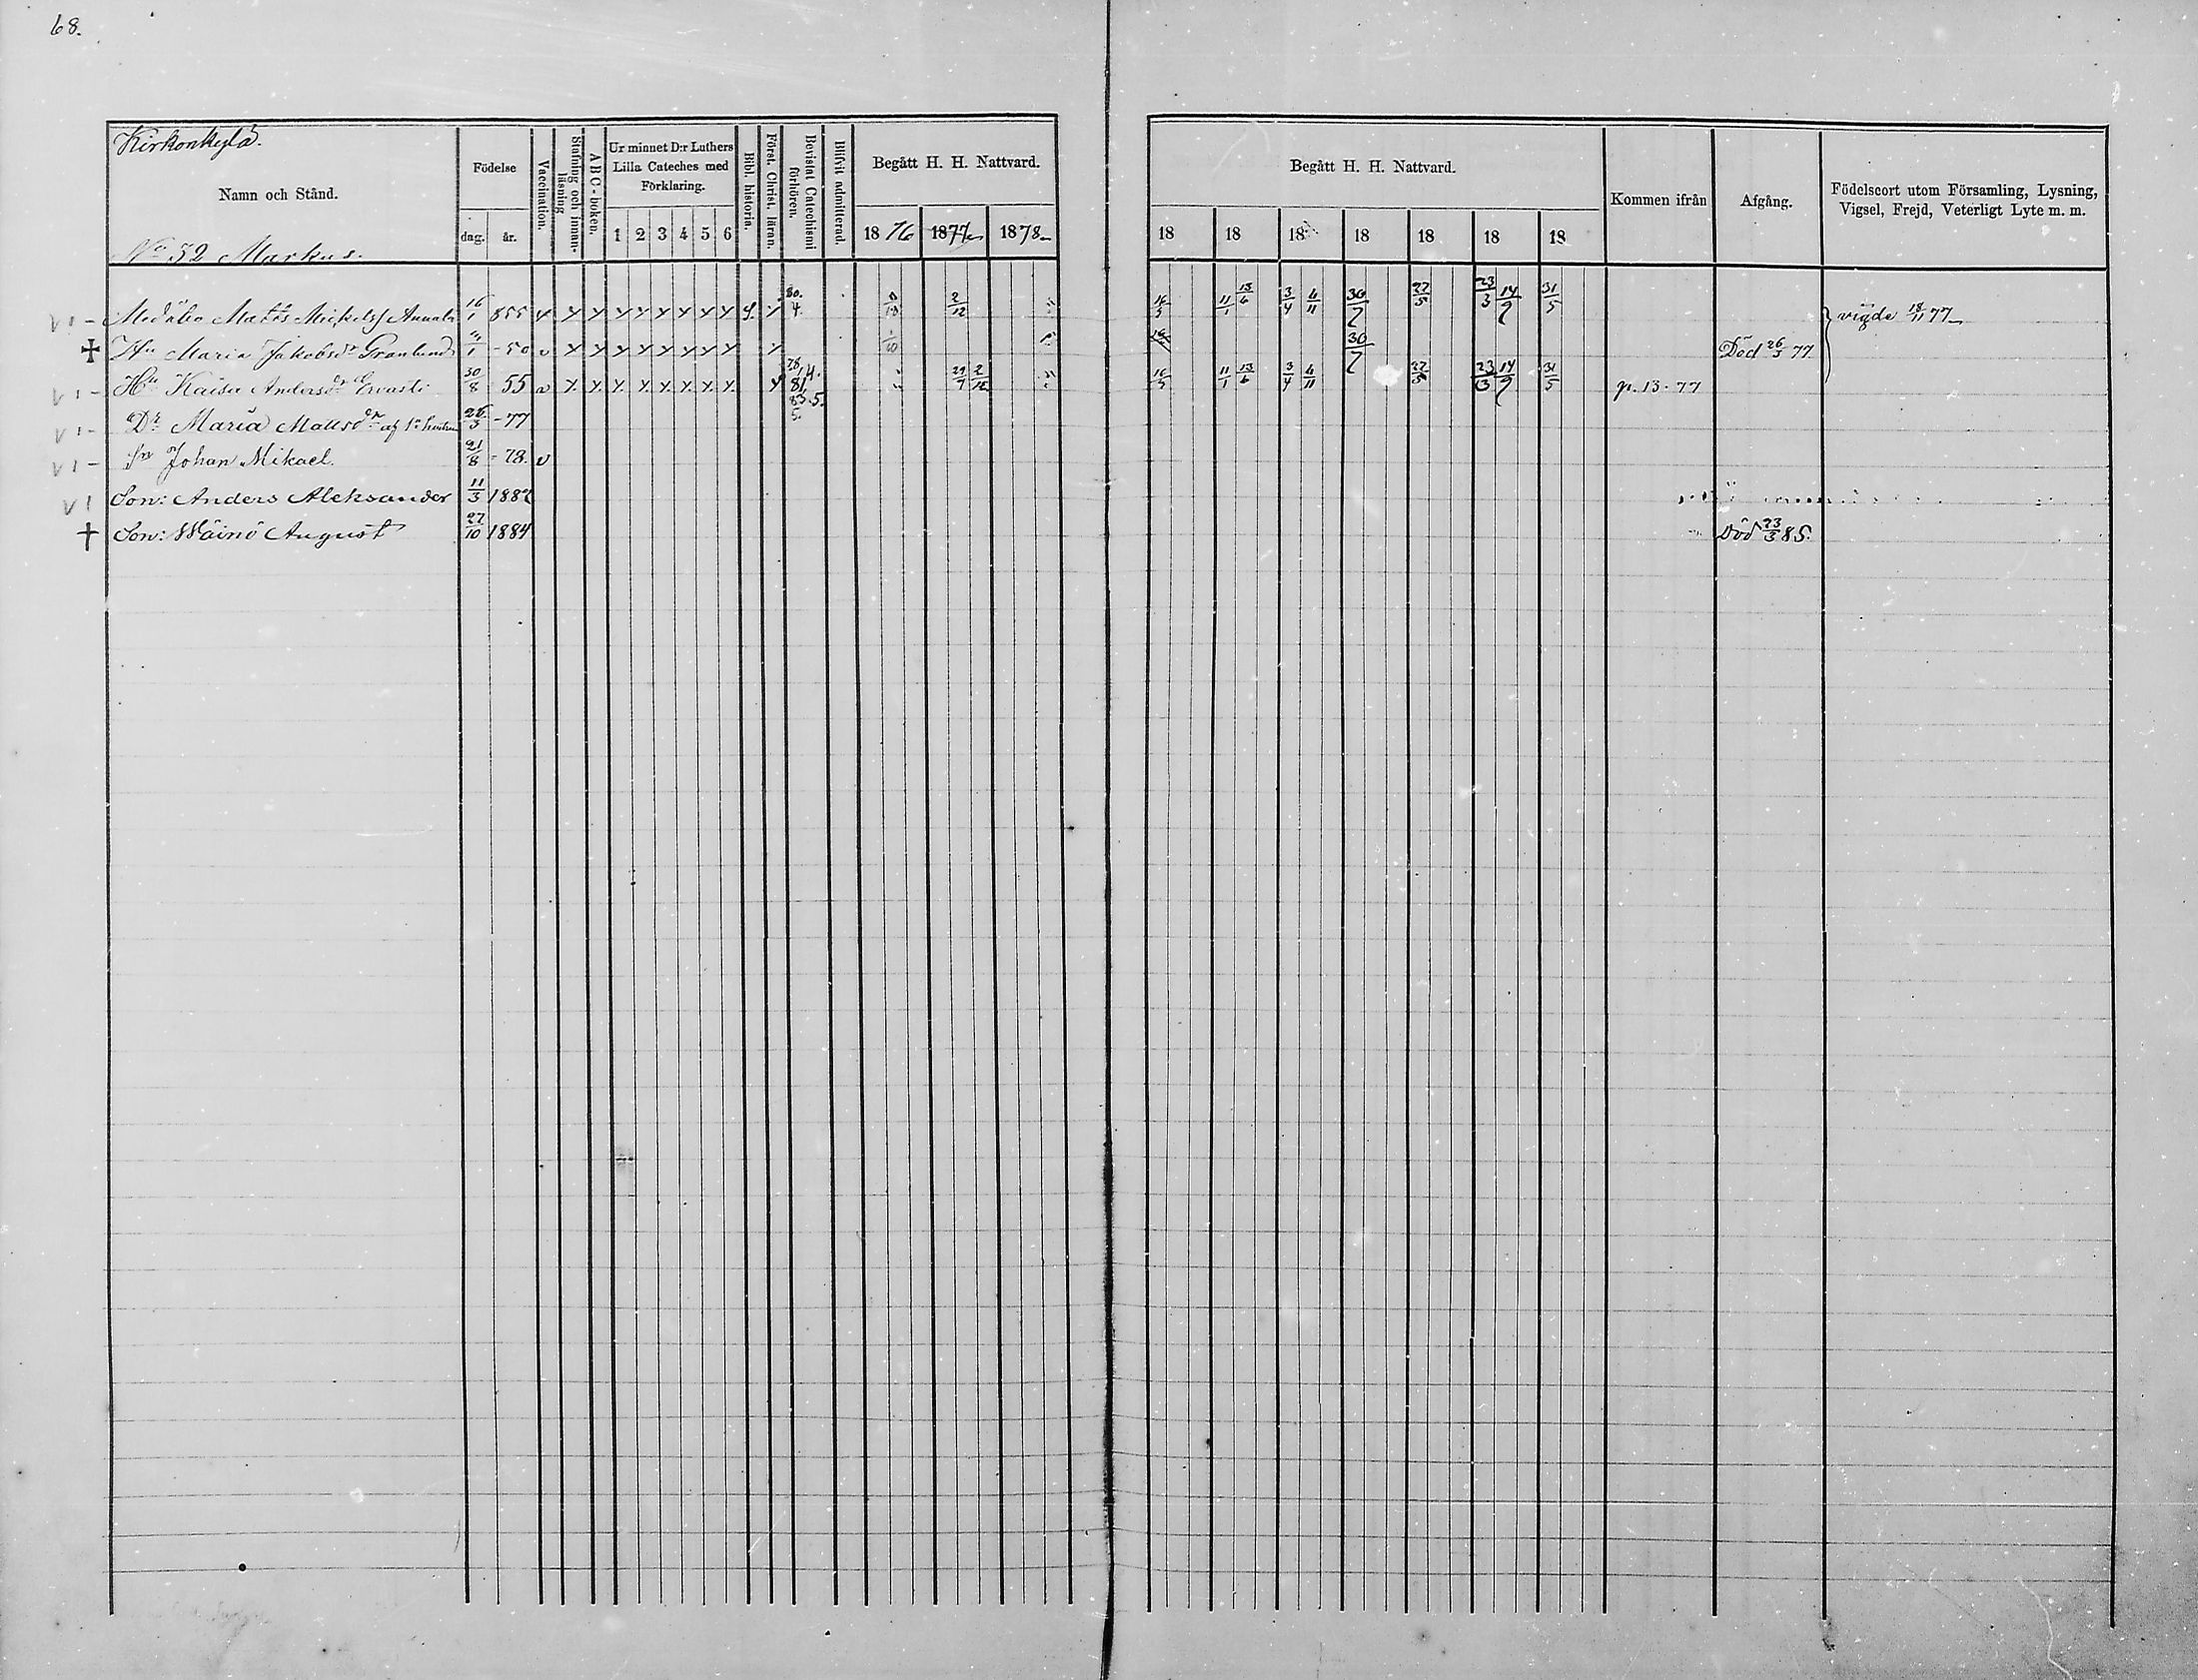 68.
Kirkonkylä.
Namn och Stånd.
No 52 Markus.
Födelse
dag. år.
Vaccination.
Stafning och innan-läsning
ABC-boken.
Ur minnet D:r Luthers Lilla Cateches med Förklaring.
1 2 3 4 5 6
Bibl. historia.
Först. Christ. läran.
Bevistat Catechismi förhören.
Blifvit admitterad.
Begått H. H. Nattvard.
1876 1877 1878
Begått H. H. Nattvard.
18 18 18 18 18 18 18
Kommen ifrån
Afgång.
Födelseort utom Församling, Lysning, Vigsel, Frejd, Veterligt Lyte m. m.
Matts Mickelss 16/1 855 v 80. 4. 2/12 16/3 11/1 13/6 3/4 4/11 30/7 22/5 23/3 14/9 31/5 vigde 18/11 77
Hu Maria Jakobsdr Grönlund 1 -50 v 30/7 Död 26/3 77
Hu Kaisa Andersdr Ervasti 30/8 55 v 78/4. 81, 83.5. 5. 29/7 2/12 16/3 11/1 13/6 3/4 4/11 22/5 23/3 14/9 31/5 p. 13. 77
Dr Maria Mattsdr af 1a 26/3 -77
Sn Johan Mikael. 21/8 -78. v
Son: Anders Aleksander 11/3 1882
Son: Wäinö August 27/10 1884 Död 23/3 85.